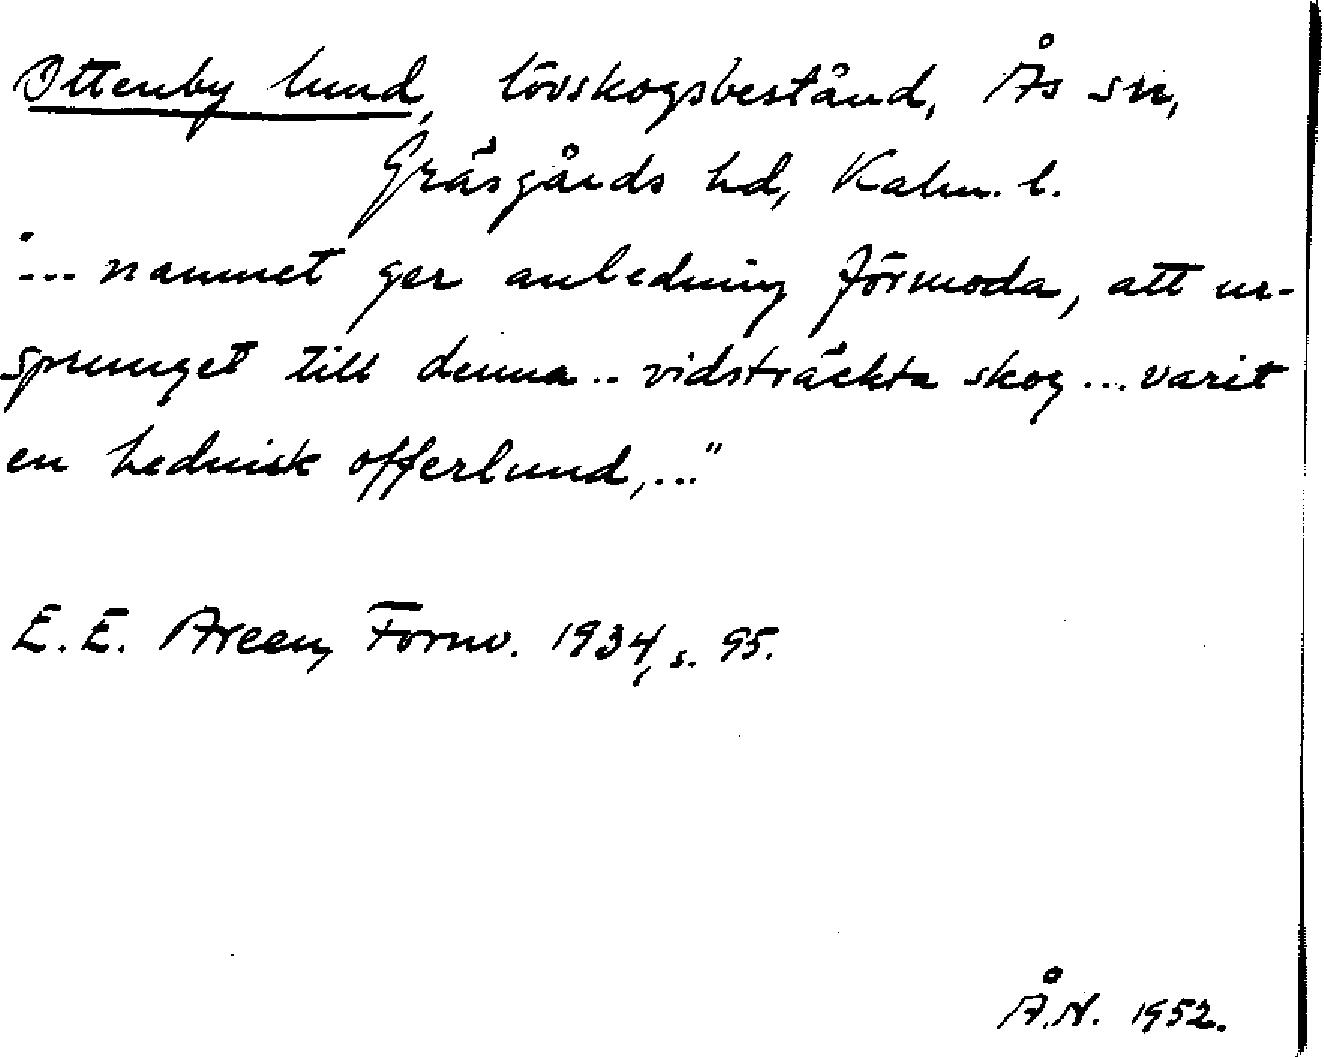 Ottenby lund, lövskogsbestånd, Ås sn,
Gräsgårds hd, Kalm. l.
"... namnet ger anledning förmoda, att ur-
sprunget till denna .. vidsträckta skog ... varit
en hednisk offerlund,..."
E. E. Areen, Fornv. 1934, s. 95.
Å.N. 1952.